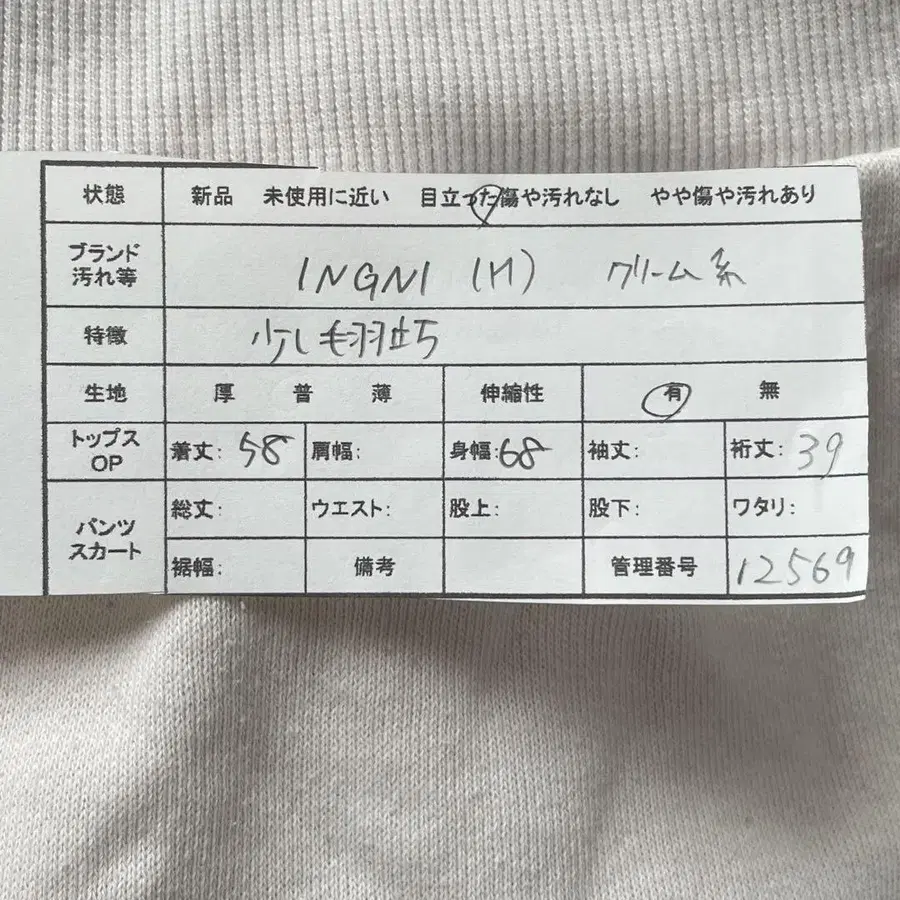 状態 新品 未使用に近い 目立った傷や汚れなし やや傷や汚れあり
ブランド
汚れ等 INGNI (M) クリーム系
特徴 少し毛羽立ち
生地 厚 普 薄 伸縮性 有 無
トップス
OP 着丈: 58 肩幅: 身幅: 68 袖丈: 裄丈: 39
パンツ
スカート 総丈: ウエスト: 股上: 股下: ワタリ:
裾幅: 備考 管理番号 12569